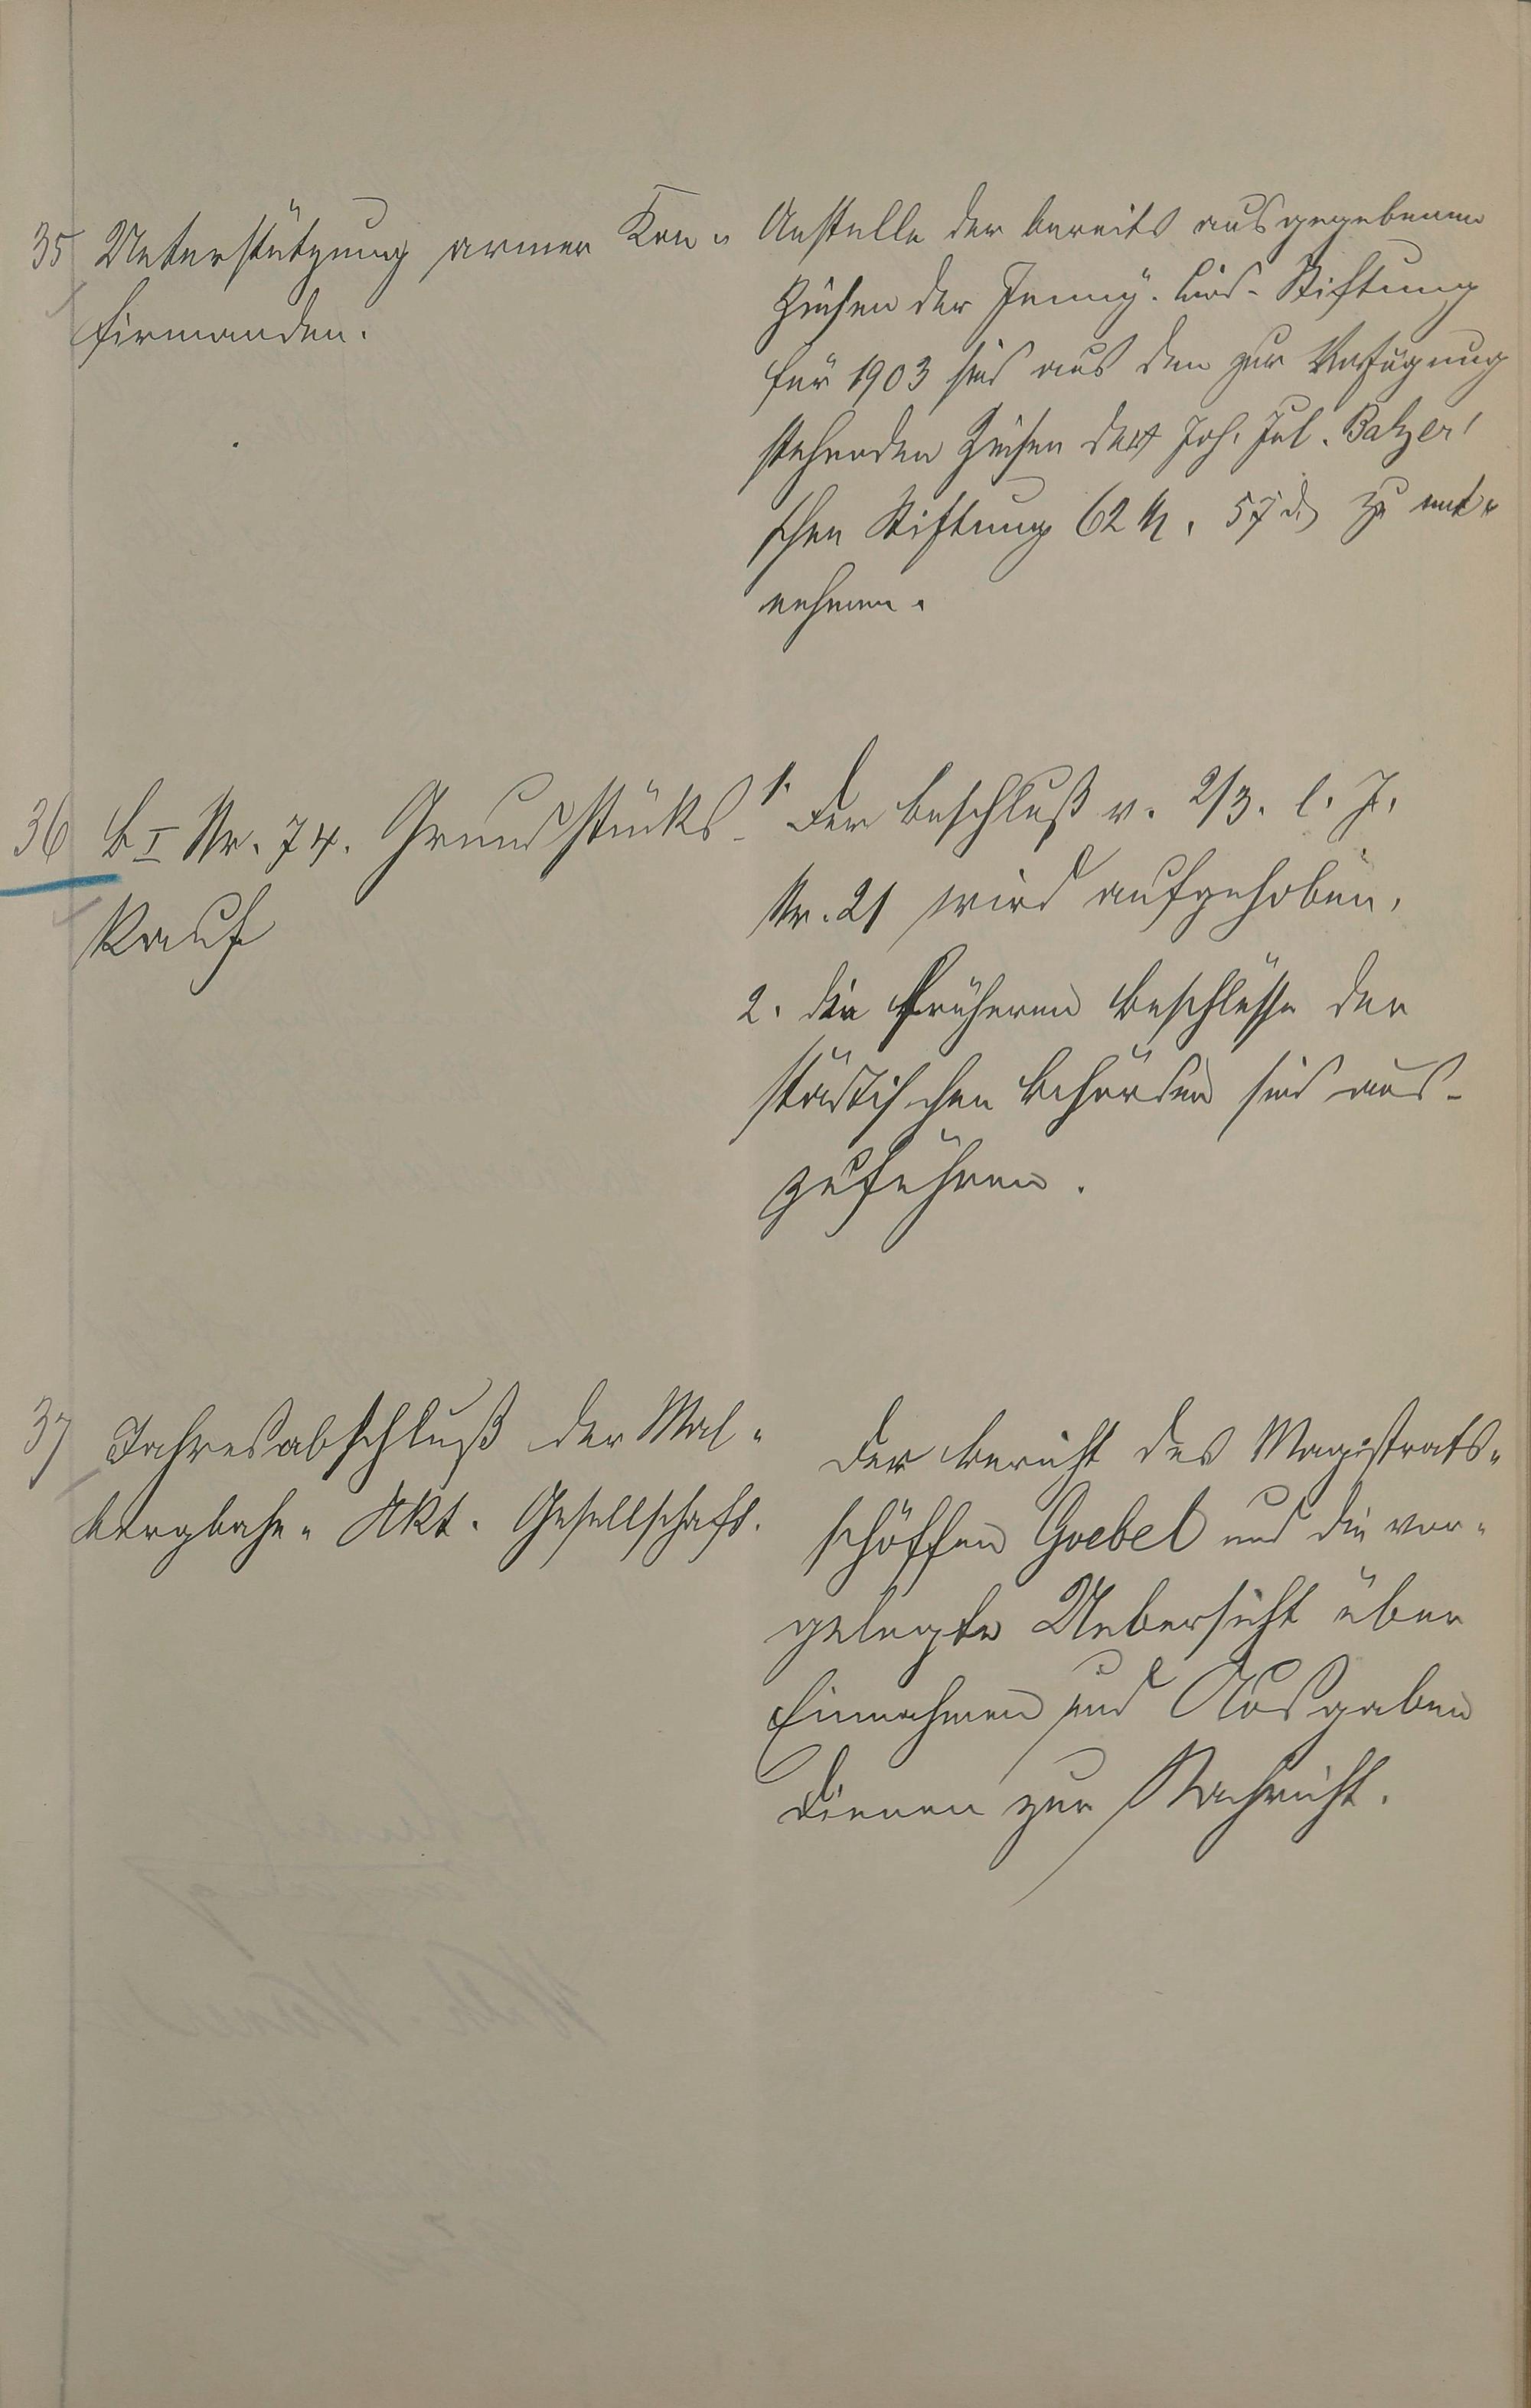 35 Unterstützung armer Kon-
firmanden.
Anstelle der bereits ausgegebenen
Zinsen der Jenny-Lind-Stiftung
für 1903 sind aus den zur Verfügung
stehenden Zinsen der Joh. Jul. Balzer'
schen Stiftung 62 M. 57 d zu ent-
nehmen.
36 B I Nr. 74. Grundstücks-
Kauf
1. Der Beschluß v. 2/3. l. J.
Nr. 21 wird aufgehoben,
2. die früheren Beschlüsse der
städtischen Behörden sind aus-
zuführen.
37 Jahresabschluß der Mal-
bergbahn-Akt. Gesellschaft.
Der Bericht des Magistrats-
schöffen Goebel und die vor-
gelegte Uebersicht über
Einnahmen und Ausgaben
dienen zur Nachricht.